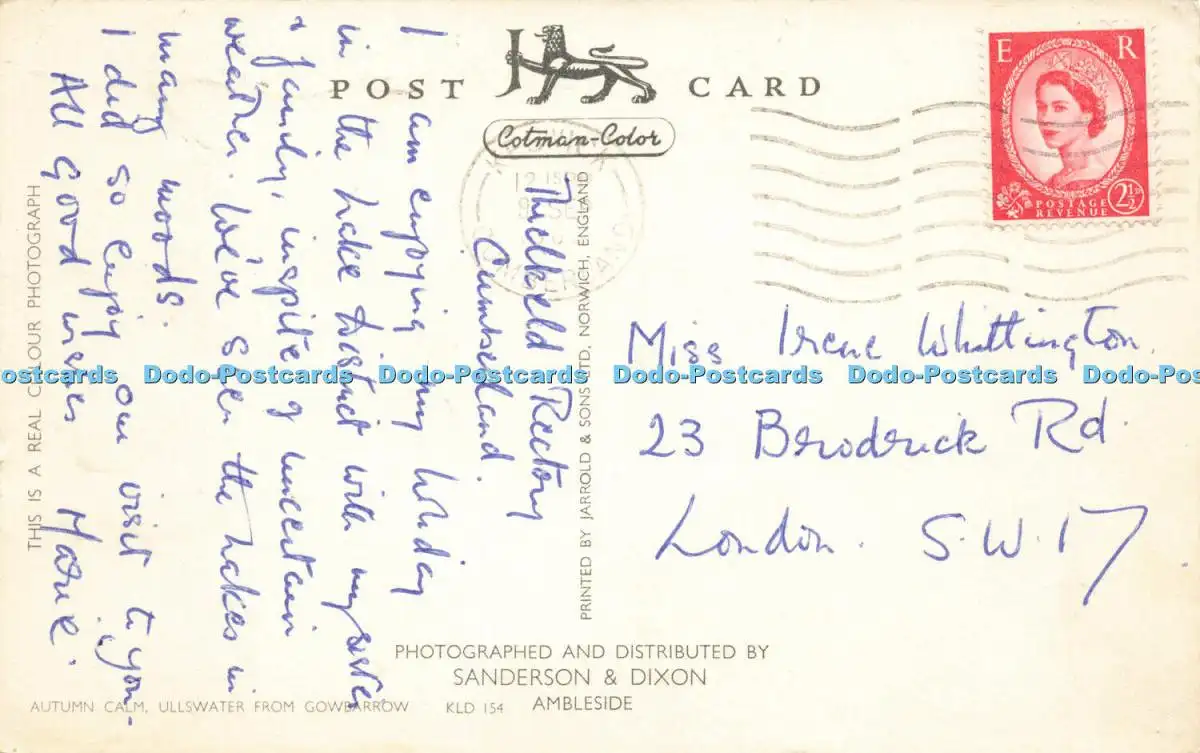 POST CARD
Cotman-Color
E R
POSTAGE
REVENUE
2½D
Threlkeld Rectory
Cumberland.
I am enjoying my holiday
in the Lake District with my sister
& family, inspite of uncertain
weather. We've seen the lakes in
many moods.
I did so enjoy our visit to you -
All Good wishes
Marie.
Miss Irene Whittington.
23 Brodrick Rd.
London. S.W.17
THIS IS A REAL COLOUR PHOTOGRAPH
PRINTED BY JARROLD & SONS LTD, NORWICH, ENGLAND
PHOTOGRAPHED AND DISTRIBUTED BY
SANDERSON & DIXON
AMBLESIDE
AUTUMN CALM, ULLSWATER FROM GOWBARROW KLD 154
Dodo-Postcards Dodo-Postcards Dodo-Postcards Dodo-Postcards Dodo-Postcards